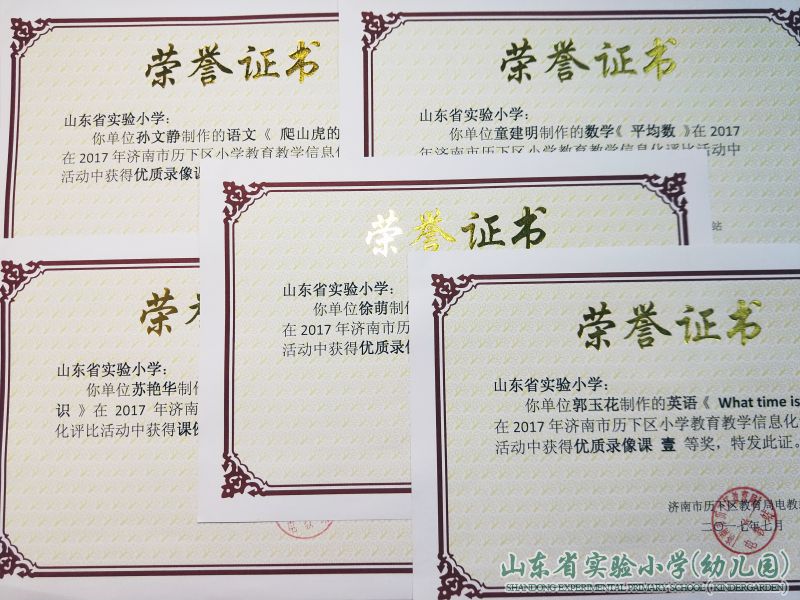 荣誉证书
山东省实验小学：
你单位孙文静制作的语文《 爬山虎的
在 2017 年济南市历下区小学教育教学信息化
活动中获得优质录像课
荣誉证书
山东省实验小学：
你单位童建明制作的数学《 平均数 》在 2017
年济南市历下区小学教育教学信息化评比活动中
站
荣誉证书
山东省实验小学：
你单位徐萌制作
在 2017 年济南市历
活动中获得优质录像
荣
山东省实验小学：
你单位苏艳华制作
识 》在 2017 年济南
化评比活动中获得课
荣誉证书
山东省实验小学：
你单位郭玉花制作的英语《 What time is
在 2017 年济南市历下区小学教育教学信息化
活动中获得优质录像课 壹 等奖，特发此证。
济南市历下区教育局电教
二〇一七年七月
山东省实验小学(幼儿园)
SHANDONG EXPERIMENTAL PRIMARY SCHOOL (KINDERGARDEN)